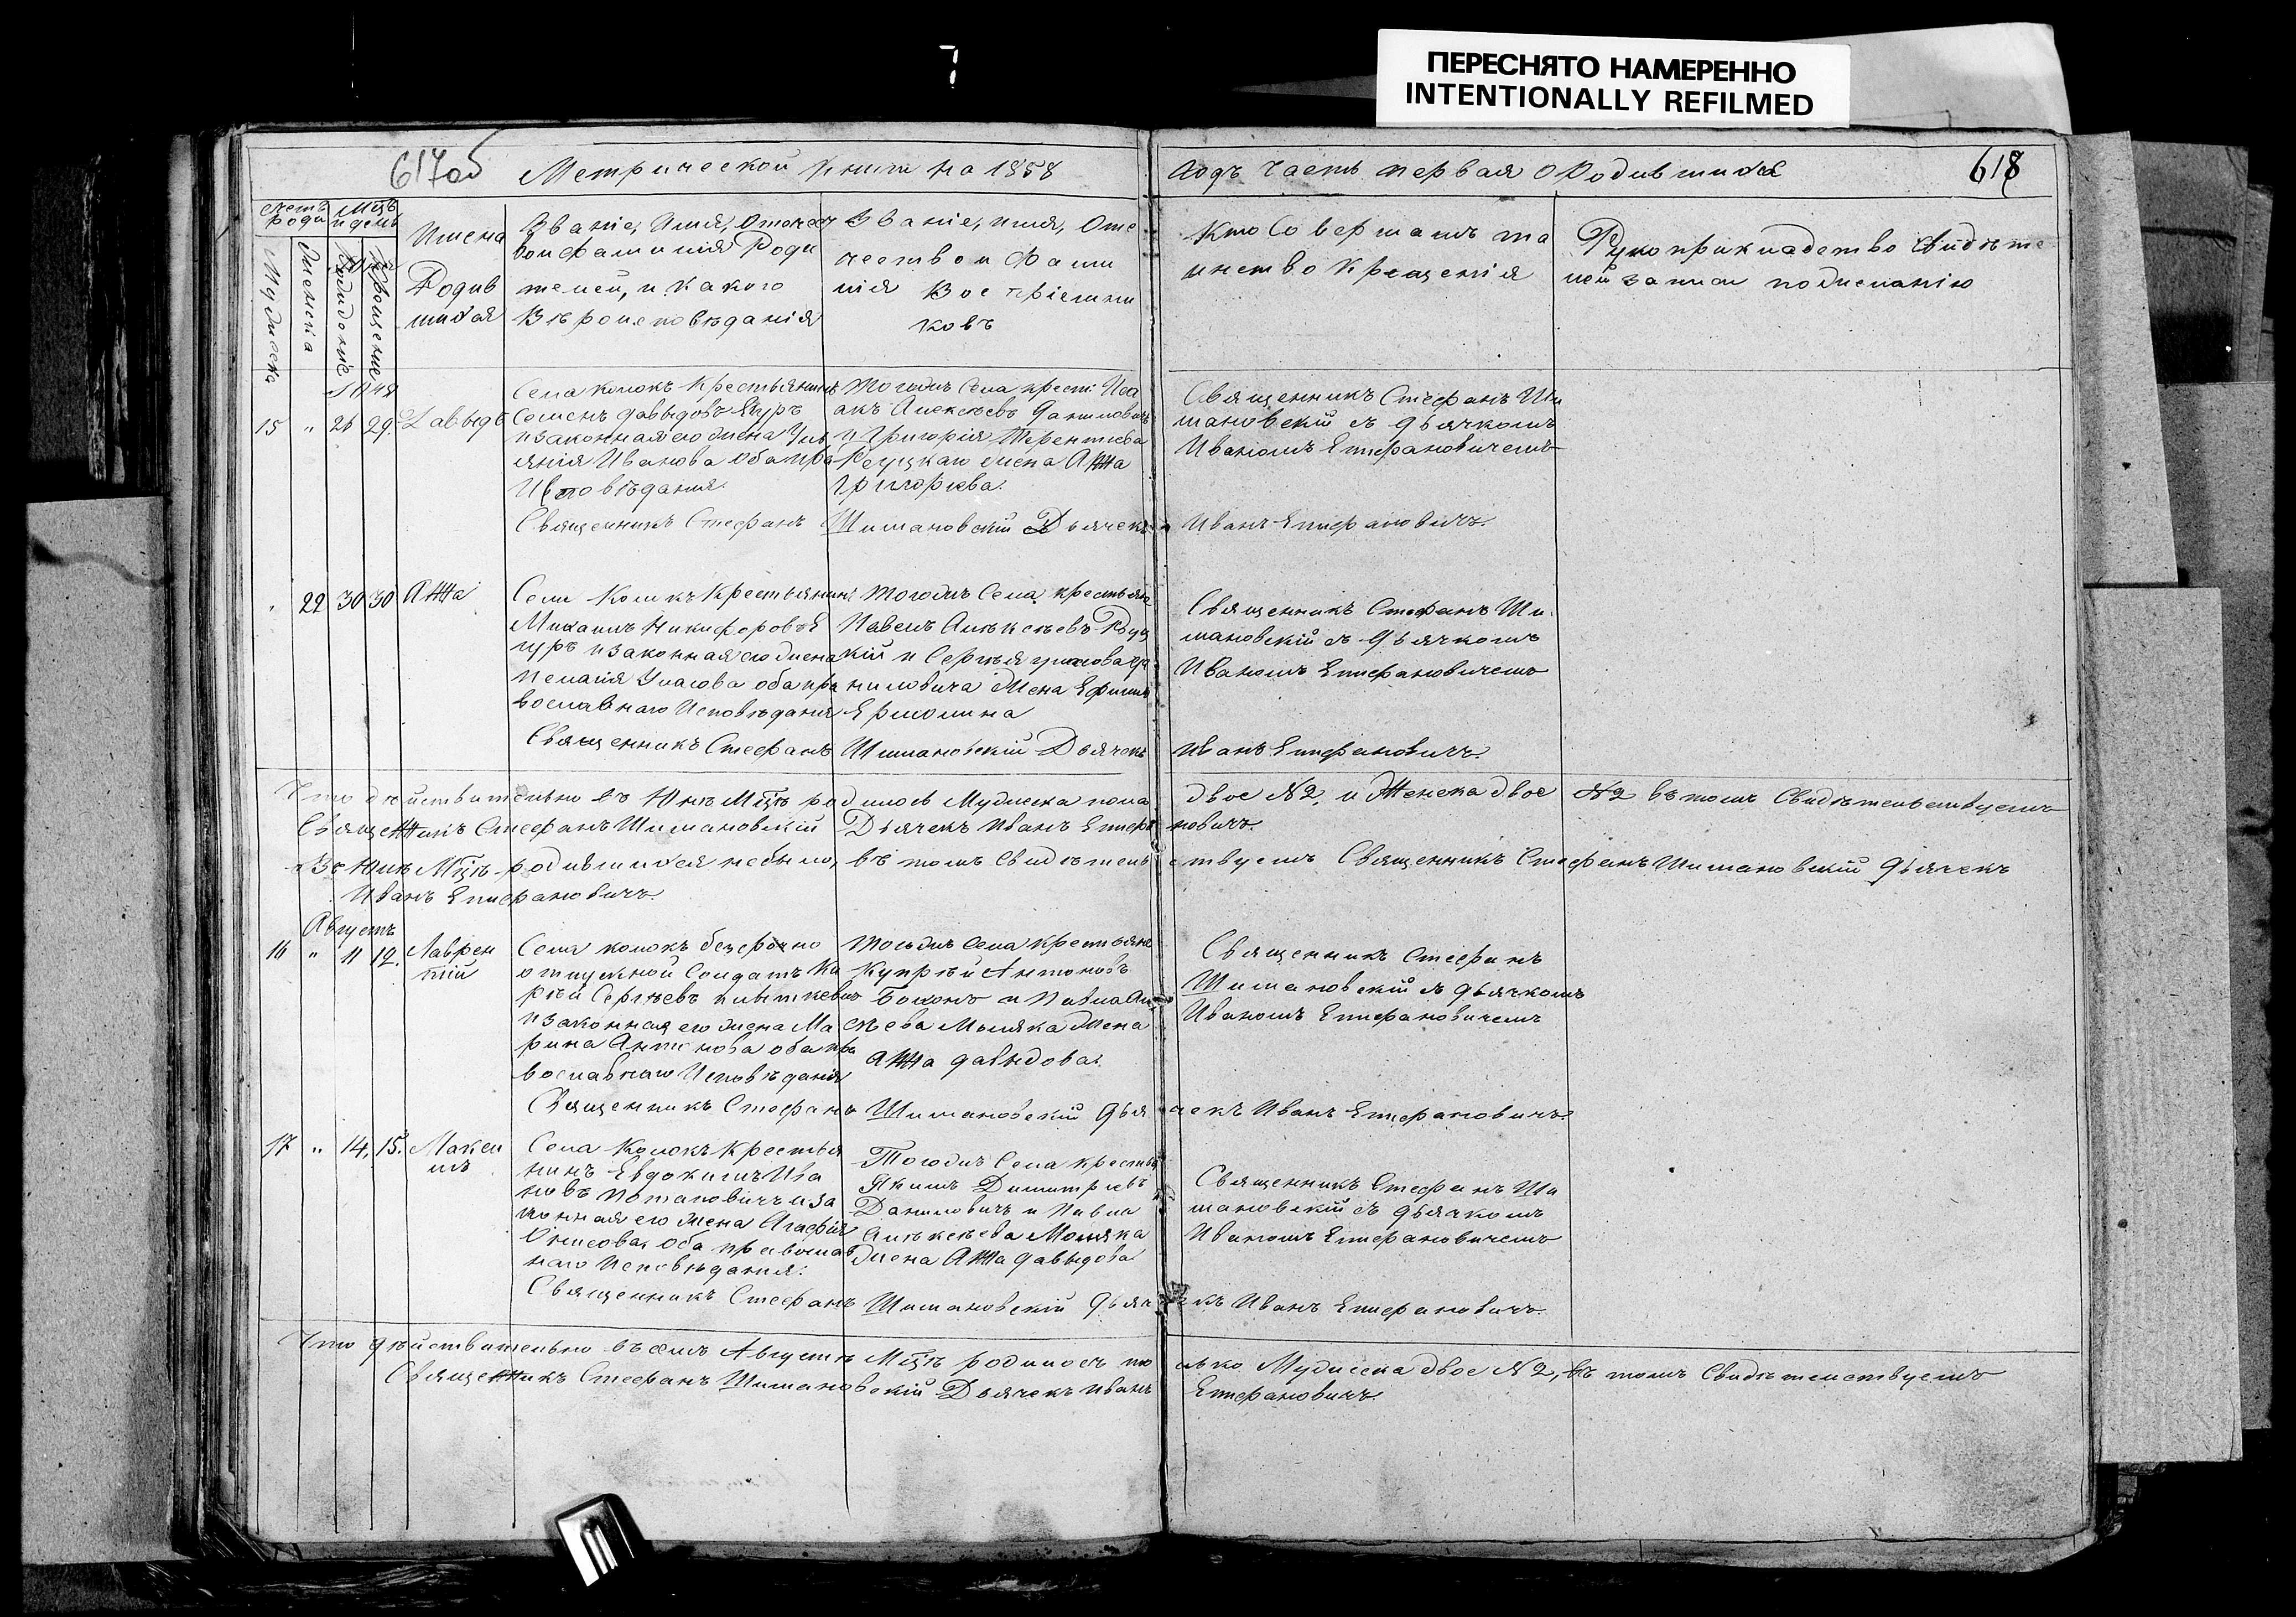 7
ПЕРЕСНЯТО НАМЕРЕННО
INTENTIONALLY REFILMED
617об Метрической книги на 1858
годъ часть первая о Родившихся 618
счетъ роди
Мцъ и день
Мужеска
Женска
Рожденіе
Крещеніе
Имена
Родив
шихся
Званіе, Имя, Отчест
во и фамилія Роди
телей, и какого
Вѣроисповѣданія
Званіе, имя, Оте
чество и Фами
лія Воспріемни
ковъ
Кто Совершалъ та
инство Крещенія
Рукоприкладство Свидѣте
лей записи по желанію
Іюня
15 " 26 29. Давыдъ
Села Колокъ Крестьянинъ
Семенъ Давыдовъ
и законная его жена Уль
янія Иванова оба пра
Исповѣданія.
Тогожъ Села крест: Иса
акъ Алексѣевъ Даниловичъ
и Григорія Терентіева
жена Анна
Григорьева.
Священникъ Стефанъ Ши
мановскій съ дьячкомъ
Иваномъ Епифановичемъ
Священникъ Стефанъ Шимановскій Дьячекъ Иванъ Епифановичъ.
" 22 30 30 Анна
Села Колокъ Крестьянинъ
Михаилъ Никифоровъ
и законная его жена
Пелагія Власова оба пра
вославнаго Исповѣданія
Тогожъ Села крестьяне
Павелъ Алексѣевъ
кій и Сергѣя Да
ниловича жена Ефимія
Ермолина
Священникъ Стефанъ Ши
мановскій съ дьячкомъ
Иваномъ Епифановичемъ
Священникъ Стефанъ Шимановскій Дьячекъ Иванъ Епифановичъ.
Что дѣйствительно въ Юнѣ Мцѣ родилось Мужеска пола двое №2, и Женска двое №2 въ томъ Свидѣтельствуемъ
Священникъ Стефанъ Шимановскій Дьячекъ Иванъ Епифановичъ.
Въ Юлѣ Мцѣ родившихся небыло, въ томъ Свидѣтельствуемъ Священникъ Стефанъ Шимановскій Дьячекъ
Иванъ Епифановичъ.
Августъ
16 " 11 12. Лаврен
тій
Села Колокъ безсрочно
отпускной Солдатъ Ка
рпѣй Сергѣевъ
и законная его жена Ма
рина Антонова оба пра
вославнаго Исповѣданія
Тогожъ Села Крестьяне
Купрѣй Антоновъ
и Павла Але
ксѣева жена
Анна Давыдова.
Священникъ Стефанъ
Шимановскій съ дьячкомъ
Иваномъ Епифановичемъ
Священникъ Стефанъ Шимановскій Дьячекъ Иванъ Епифановичъ.
17 " 14. 15. Макси
мъ
Села Колокъ Крестья
нинъ Евдокимъ Ива
новъ Потаповичъ и за
конная его жена Агафія
оба православ
наго Исповѣданія.
Тогожъ Села крестья
Якимъ Димитріевъ
Даниловичъ и Павла
Алексѣева
жена Анна Давыдова
Священникъ Стефанъ Ши
мановскій съ дьячкомъ
Иваномъ Епифановичемъ
Священникъ Стефанъ Шимановскій Дьячекъ Иванъ Епифановичъ.
Что дѣйствительно въ семъ Августѣ Мцѣ родилось только Мужеска двое №2, въ томъ Свидѣтелствуемъ
Священникъ Стефанъ Шимановскій Дьячекъ Иванъ Епифановичъ.